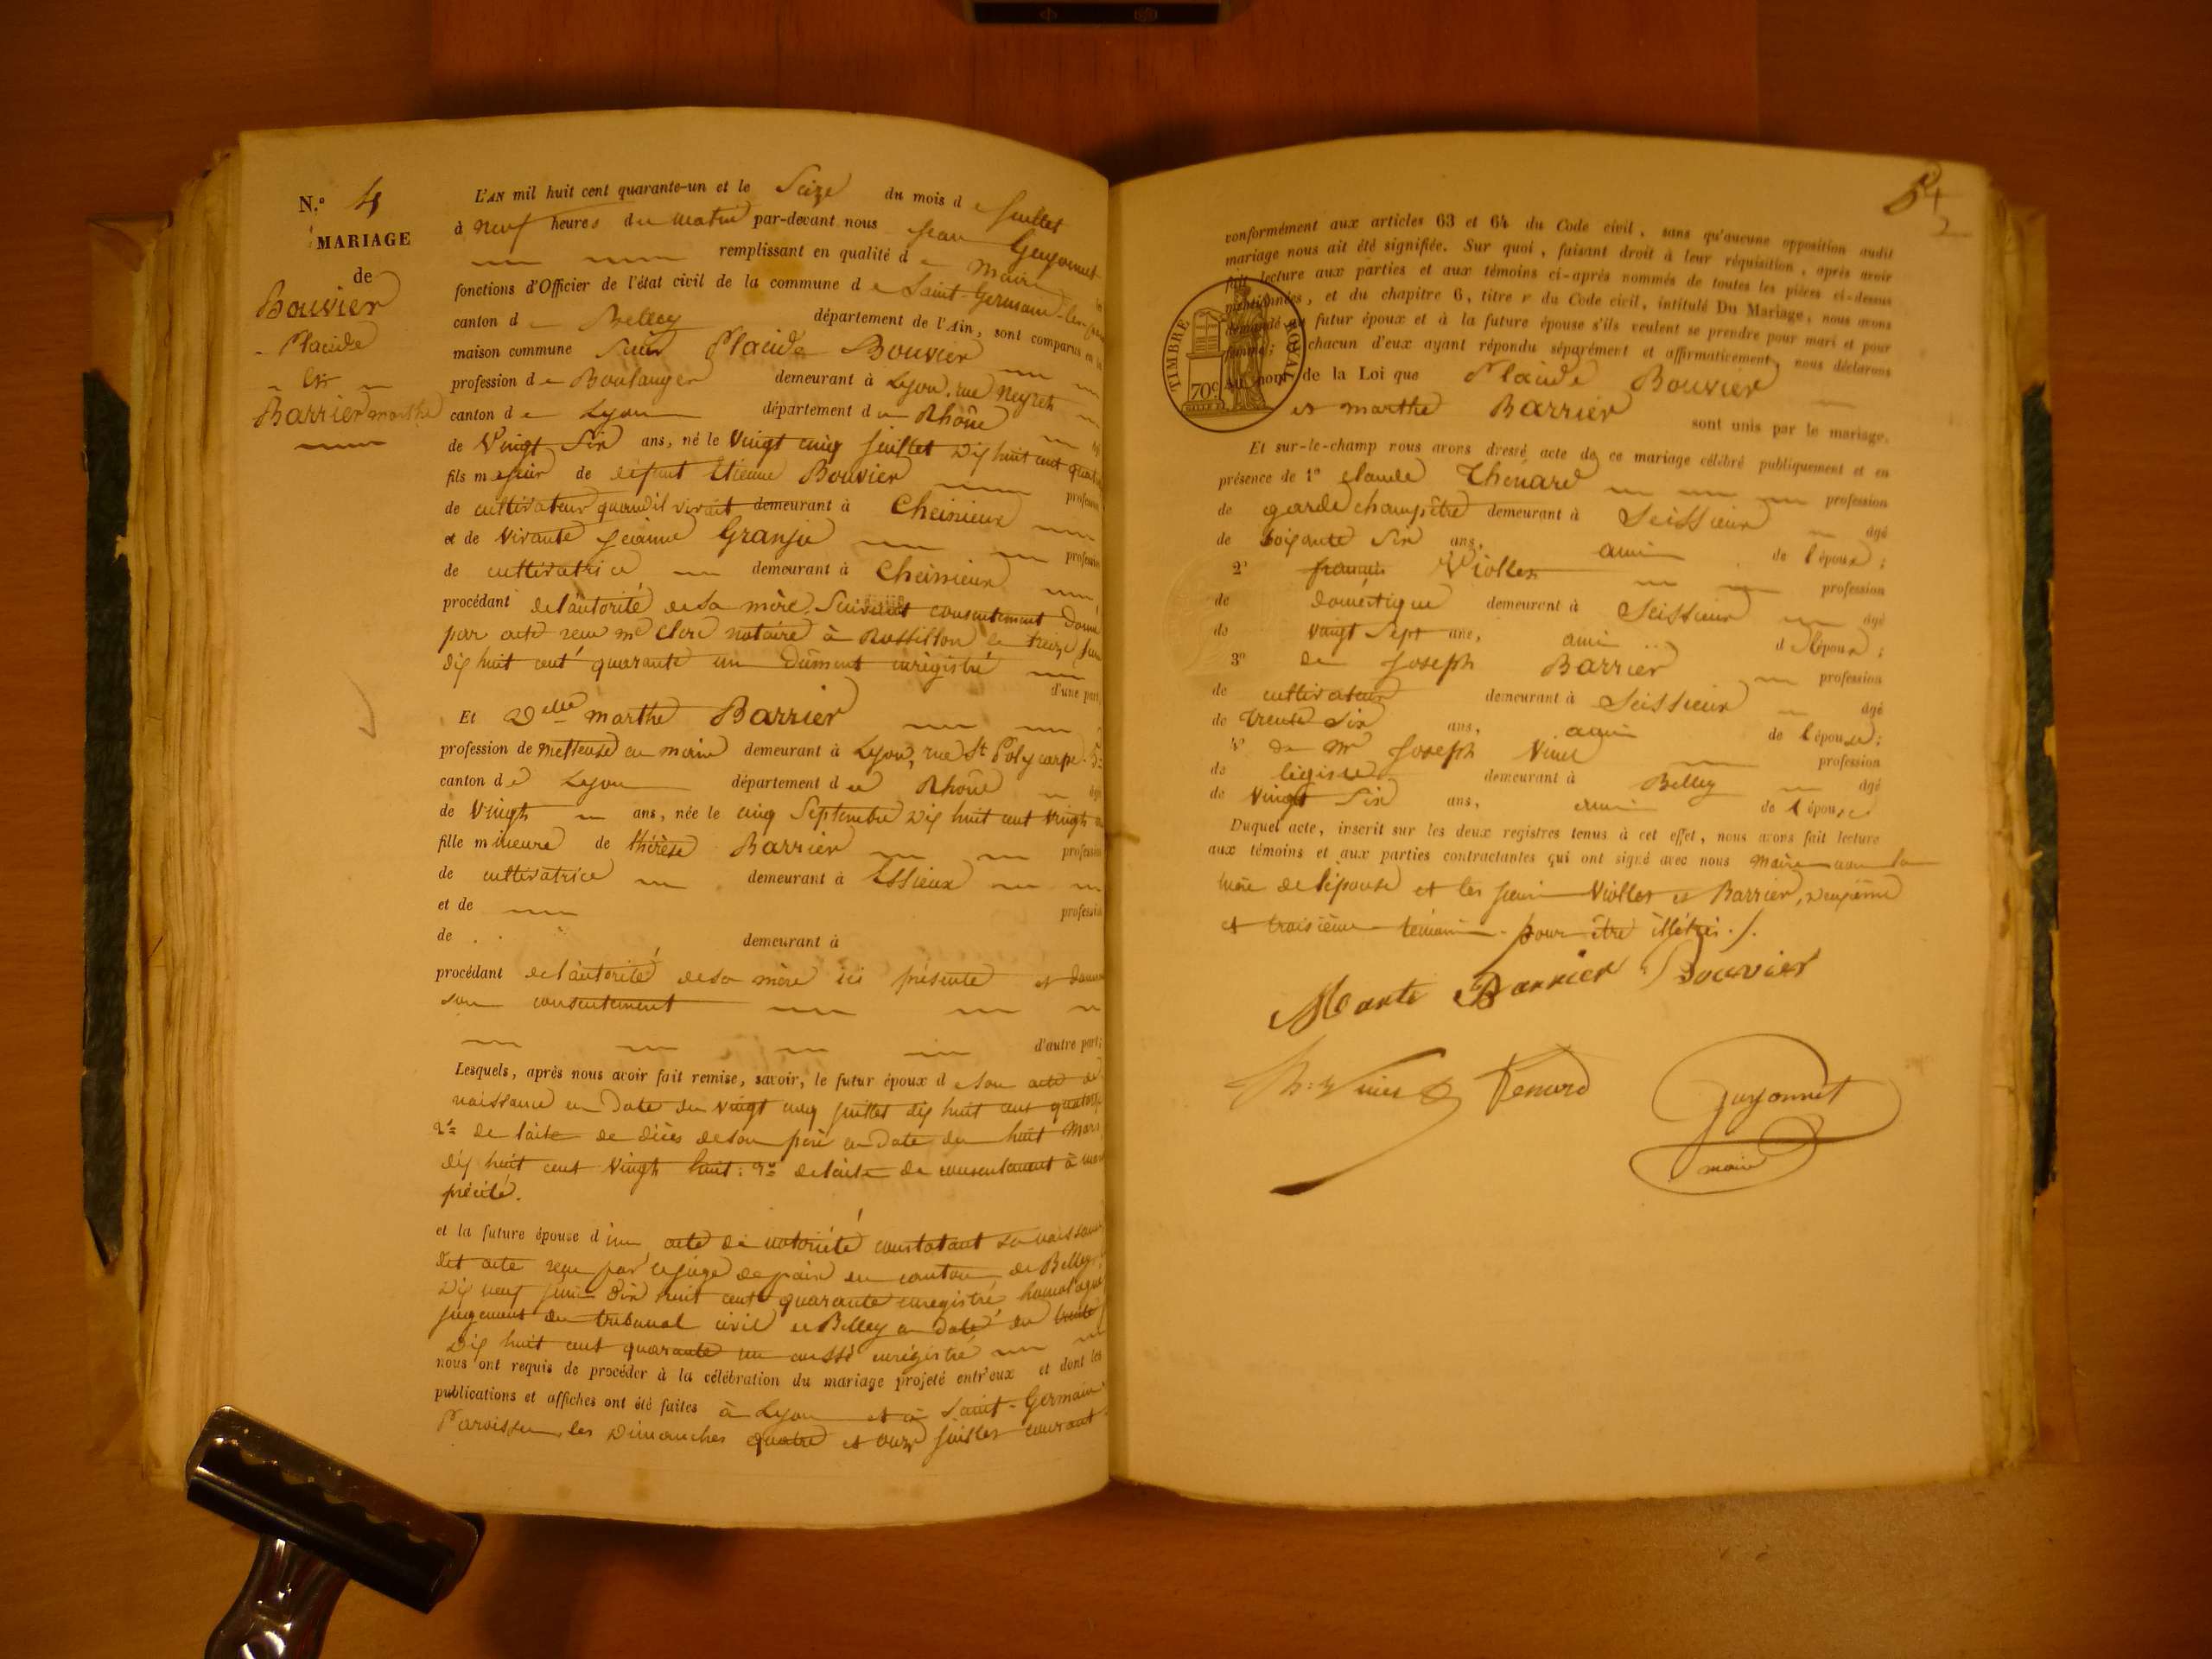 N.º 4
MARIAGE
de
Bouvier
Placide
et
Barrier marthe
L'AN mil huit cent quarante-un et le Seize du mois de juillet
à neuf heures du matin par-devant nous jean Guyonnet
remplissant en qualité de maire
fonctions d'Officier de l'état civil de la commune de Saint-Germain-les-
canton de Belley département de l'Ain, sont comparus en la
maison commune Sieur Placide Bouvier
profession de Boulanger demeurant à Lyon, rue Neyret
canton de Lyon département du Rhône
de Vingt Six ans, né le Vingt cinq juillet dix huit cent quatorze
fils majeur de défunt Etienne Bouvier profession
de cultivateur quand il vivait demeurant à Cheinieux
et de vivante jeanne Granju profession
de cultivatrice demeurant à Cheinieux
procédant de l'autorité de sa mère, Suivant consentement donné
par acte reçu me Clerc notaire à Rossillon le treize
dix huit cent quarante un dûment enrégistré
d'une part,
Et Delle marthe Barrier
profession de metteuse en main demeurant à Lyon, rue St Polycarpe 5
canton de Lyon département du Rhône
de Vingt ans, née le cinq Septembre dix huit cent vingt
fille mineure de thérèse Barrier profession
de cultivatrice demeurant à Essieux
et de profession
de demeurant à
procédant de l'autorité de sa mère ici présente et donnant
son consentement
d'autre part;
Lesquels, après nous avoir fait remise, savoir, le futur époux de son acte de
naissance en date du vingt cinq juillet dix huit cent quatorze
2º de l'acte de décès de son père en date du huit mars
dix huit cent vingt huit: 3º de l'acte de consentement à
précité.
et la future épouse d'un acte de notoriété constatant sa naissance
dit acte reçu par le juge de paix du canton de Belley
dix neuf juin dix huit cent quarante enregistré, homologué
jugement du tribunal civil de Belley en date du trente
dix huit cent quarante un aussi enrégistré
nous ont requis de procéder à la célébration du mariage projeté entr'eux et dont les
publications et affiches ont été faites à Lyon et à Saint-Germain
Paroisses, les Dimanches quatre et onze juillet courant
54
2
conformément aux articles 63 et 64 du Code civil, sans qu'aucune opposition audit
mariage nous ait été signifiée. Sur quoi, faisant droit à leur réquisition, après avoir
fait lecture aux parties et aux témoins ci-après nommés de toutes les pièces ci-dessus
mentionnées, et du chapitre 6, titre v du Code civil, intitulé Du Mariage, nous avons
demandé au futur époux et à la future épouse s'ils veulent se prendre pour mari et pour
femme; chacun d'eux ayant répondu séparément et affirmativement, nous déclarons
au nom de la Loi que Placide Bouvier
et marthe Barrier
sont unis par le mariage.
TIMBRE ROYAL
70c
Et sur-le-champ nous avons dressé acte de ce mariage célébré publiquement et en
présence de 1º claude Thénard profession
de garde champêtre demeurant à Seissieux âgé
de Soixante Six ans, ami de l'époux;
2º françois Viollet profession
de domestique demeurant à Seissieux âgé
de vingt Sept ans, ami de l'époux;
3º de Joseph Barrier profession
de cultivateur demeurant à Seissieux âgé
de trente Six ans, ami de l'épouse;
4º de Mr Joseph Vinet profession
de légiste demeurant à Belley âgé
de Vingt Six ans, ami de l'épouse
Duquel acte, inscrit sur les deux registres tenus à cet effet, nous avons fait lecture
aux témoins et aux parties contractantes qui ont signé avec nous maire non la
mère de l'épouse et les sieurs Viollet et Barrier, deuxième
et troisième témoins pour être illétrés./.
Marte Barrier Bouvier
Tenard
Guyonnet
maire